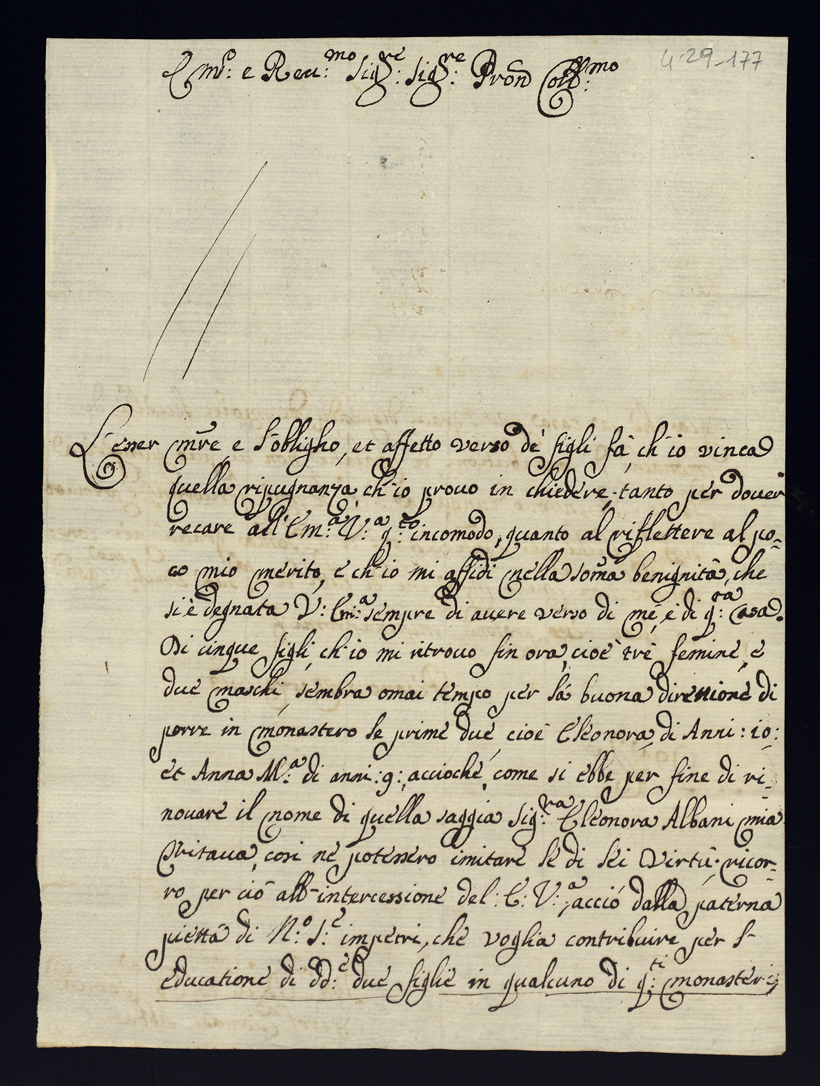 Em.o: e Reu.mo: Sig.re: Sig.re: Pron Coll.mo:
4-29-177
L'esser mre e l'obligho, et affetto verso de' figli fà, ch'io vinca
quella ripugnanza, ch'io prouo in chiedere, tanto per douer
recare all' Em.a V.a q.to incomodo, quanto al riflettere al po-
co mio merito, e ch'io mi affidi nella soma benignità, che
si è degnata V: Em.a sempre di auere verso di me, e di q.ta Casa.
Di cinque figli, ch'io mi ritrouo fin ora, cioè trè femine, e
due maschi, sembra omai tempo per la buona direttione di
porre in monastero le prime due cioè Eleonora di Anni: 10:
et Anna M.a di anni: 9: accioche, come si ebbe per fine di ri-
nouare il nome di quella saggia Sig.ra Eleonora Albani mia
Tritaua, cosi ne potessero imitare le di lei Virtù. ricor-
ro per ciò all-intercessione del: E: V:a, acciò dalla paterna
pietà di N.o S.e impetri, che voglia contribuire per l-
educatione di dd.e due figlie in qualcuno di q.ti monasterij